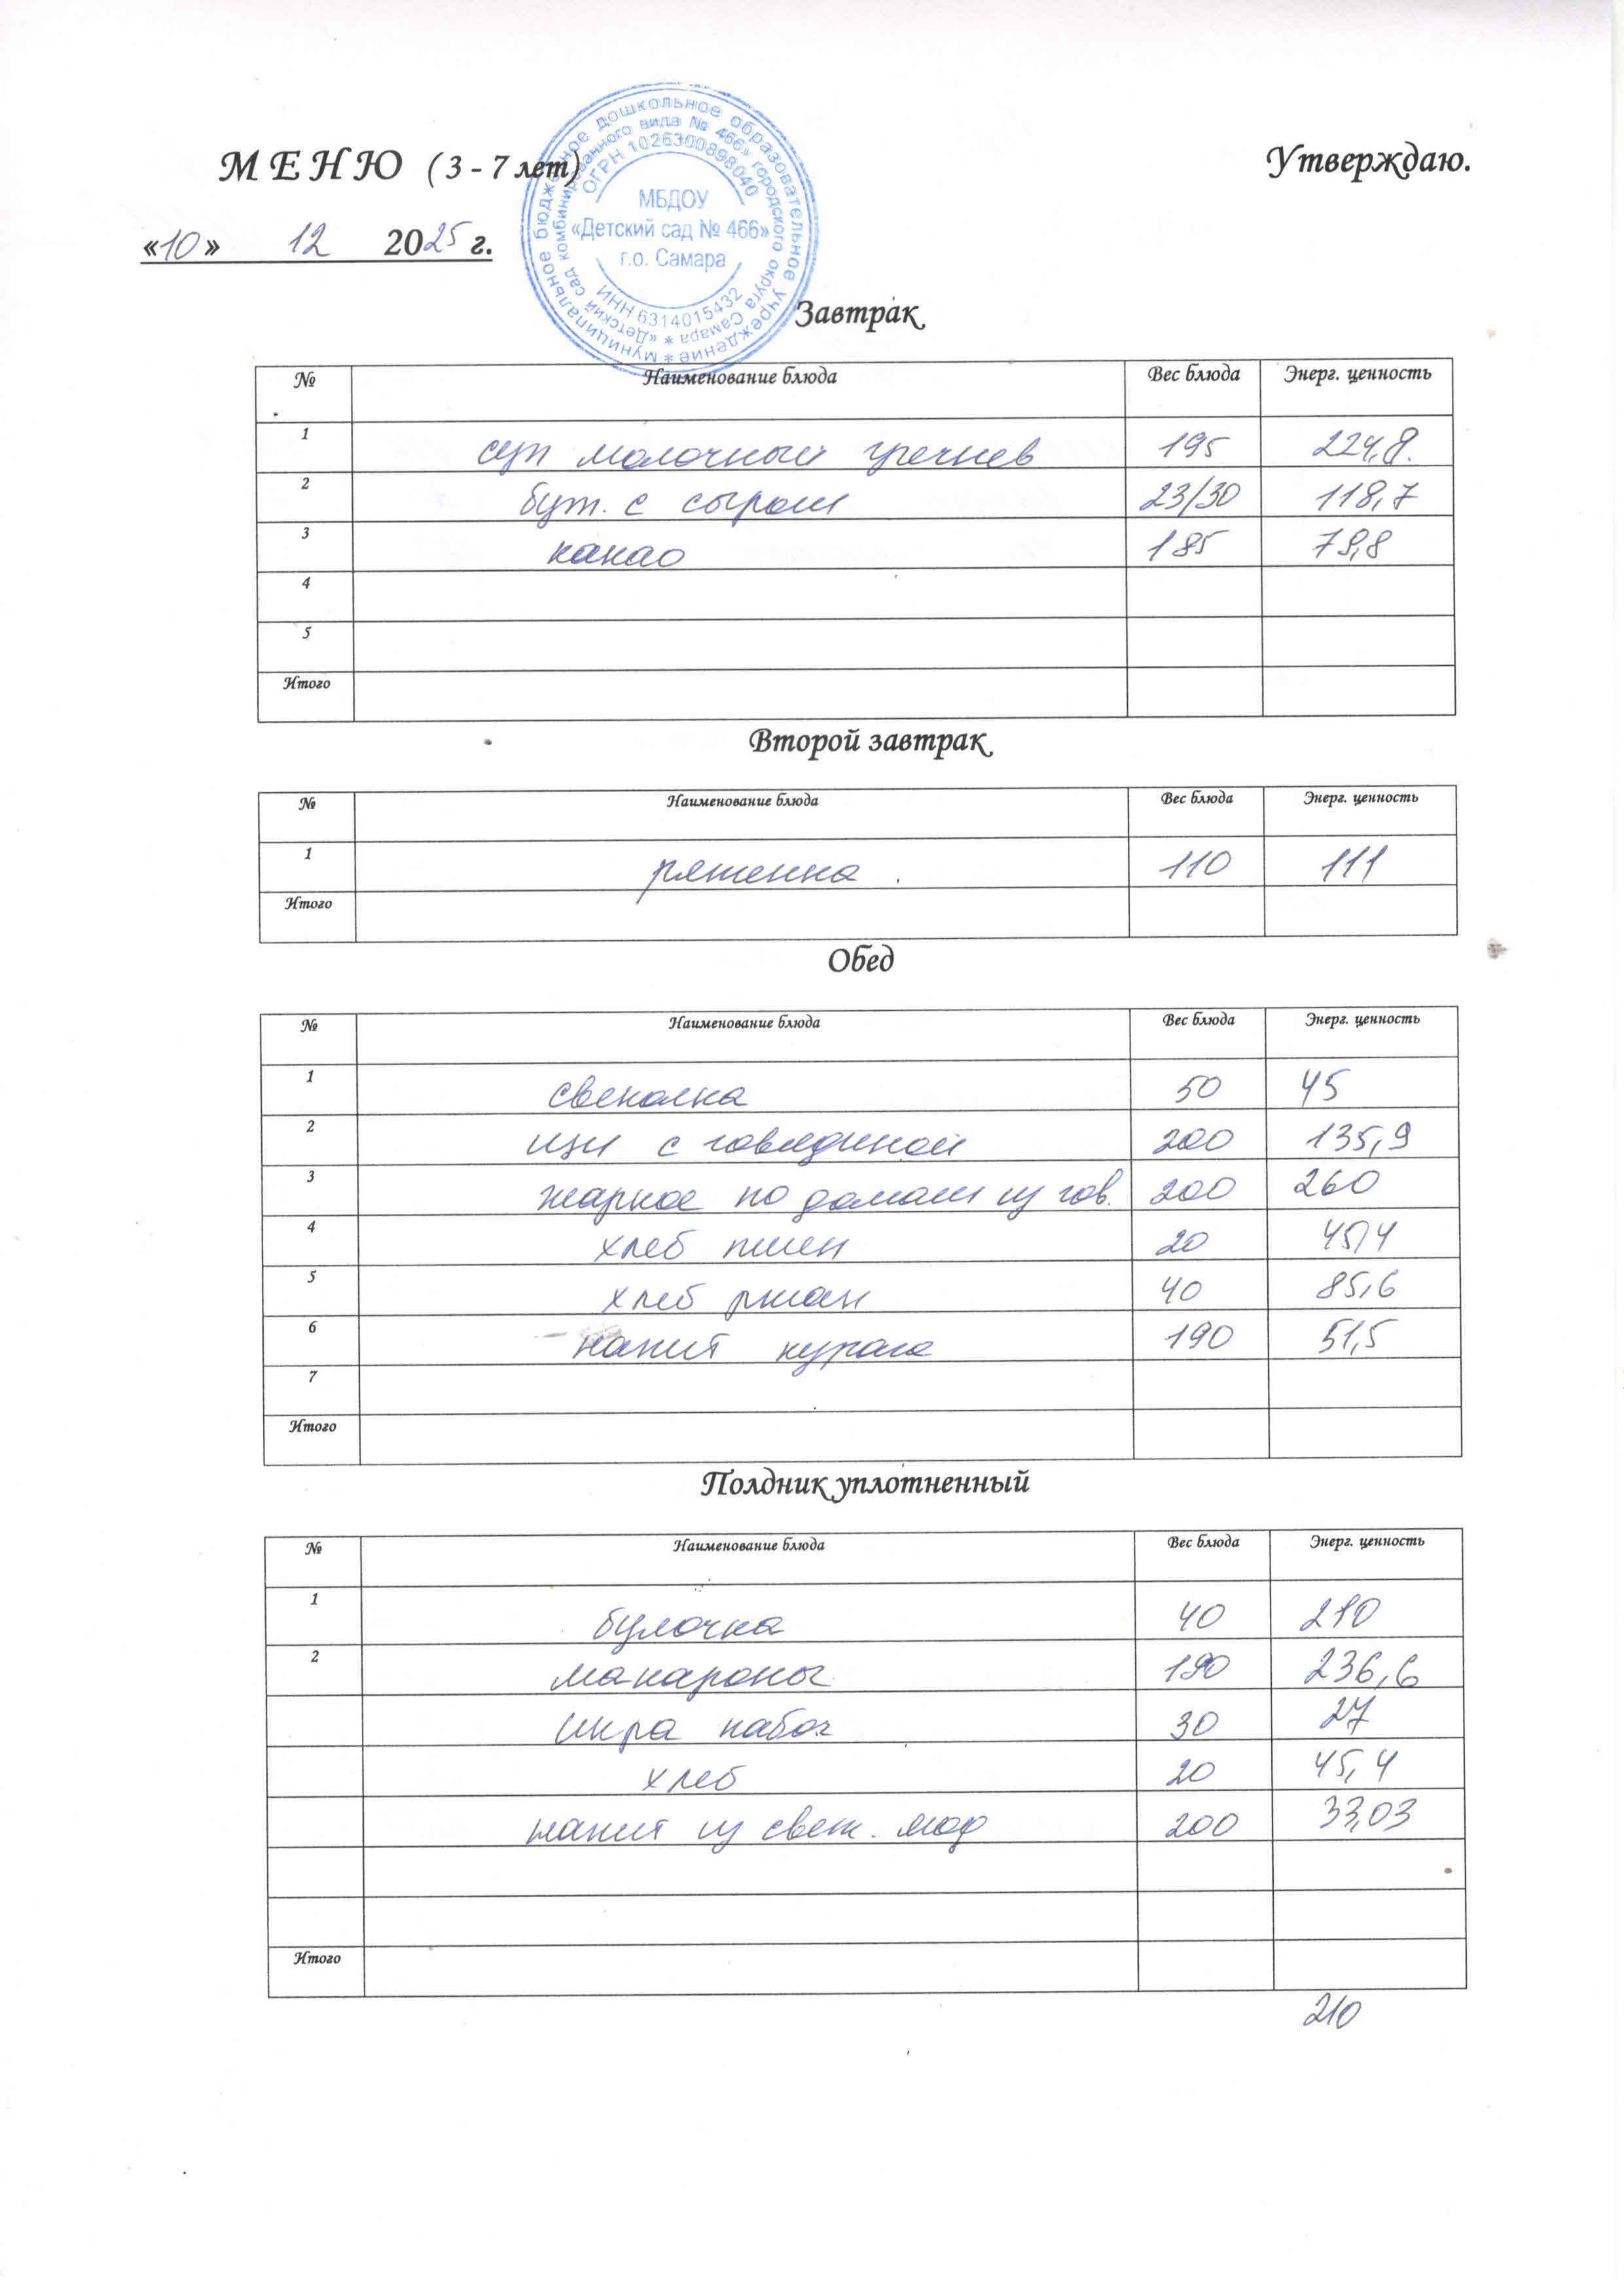 М Е Н Ю ( 3 - 7 лет) Утверждаю.
«10» 12 2025 г.
муниципальное бюджетное дошкольное образовательное учреждение *
«Детский сад комбинированного вида № 466» городского округа Самара *
ОГРН 1026300898040
МБДОУ
«Детский сад № 466»
г.о. Самара
ИНН 6314015432
Завтрак
№ Наименование блюда Вес блюда Энерг. ценность
1 суп молочный гречнев 195 224,8
2 бут. с сыром 23/30 118,7
3 какао 185 79,8
4
5
Итого
Второй завтрак
№ Наименование блюда Вес блюда Энерг. ценность
1 ряженка 110 111
Итого
Обед
№ Наименование блюда Вес блюда Энерг. ценность
1 свеколка 50 45
2 щи с говядиной 200 135,9
3 жаркое по домаш из гов. 200 260
4 хлеб пшен 20 45,4
5 хлеб ржан 40 85,6
6 напит курага 190 51,5
7
Итого
Полдник уплотненный
№ Наименование блюда Вес блюда Энерг. ценность
1 булочка 40 210
2 макароны 190 236,6
икра кабач 30 27
хлеб 20 45,4
напит из свеж. мор 200 33,03
Итого
210